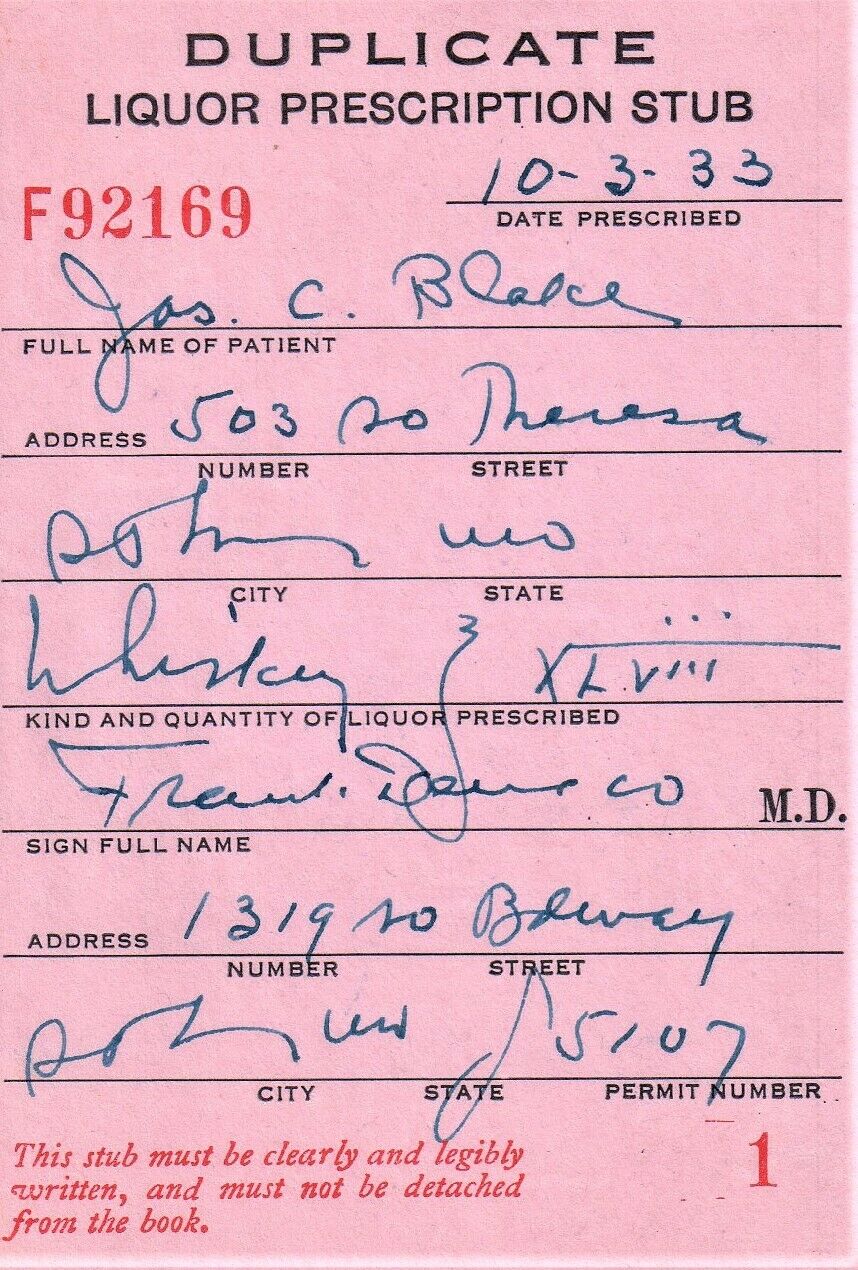 DUPLICATE
LIQUOR PRESCRIPTION STUB
10-3-33
F92169
DATE PRESCRIBED
Jas. C. Blake
FULL NAME OF PATIENT
ADDRESS 503 So Theresa
NUMBER STREET
Mo
CITY STATE
Whiskey ʒ XLVIII
KIND AND QUANTITY OF LIQUOR PRESCRIBED
Frank M.D.
SIGN FULL NAME
ADDRESS 1319 So Bdway
NUMBER STREET
Mo 5107
CITY STATE PERMIT NUMBER
This stub must be clearly and legibly
written, and must not be detached
from the book.
1